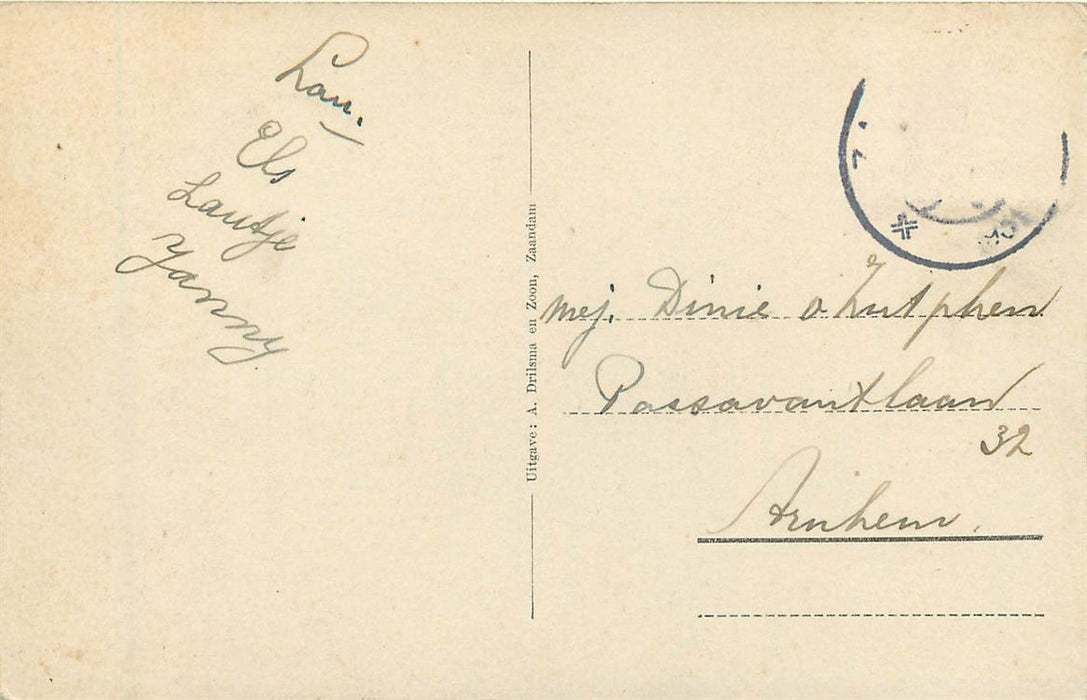 Lau.
Els
Lautje
Janny
Uitgave: A. Drilsma en Zoon, Zaandam
mej. Dinie v Zutphen
Passavantlaan
32
Arnhem.